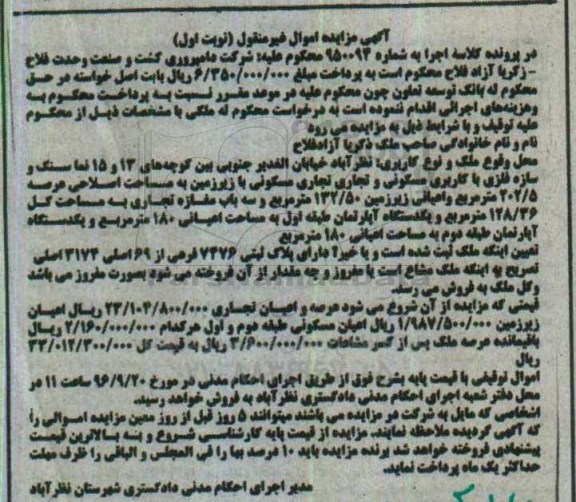 آگهی مزایده اموال غیرمنقول (نوبت اول)
در پرونده کلاسه اجرا به شماره ۹۵۰۰۹۳ محکوم علیه: شرکت دامپروری کشت و صنعت وحدت فلاح
- زکریا آزاد فلاح محکوم است به پرداخت مبلغ ۶/۳۵۰/۰۰۰/۰۰۰ ریال بابت اصل خواسته در حق
محکوم له بانک توسعه تعاون چون محکوم علیه در موعد مقرر نسبت به پرداخت محکوم به
وهزینه‌های اجرائی اقدام ننموده است به درخواست محکوم له ملکی با مشخصات ذیل از محکوم
علیه توقیف و با شرایط ذیل به مزایده می رود
نام و نام خانوادگی صاحب ملک ذکریا آزادفلاح
محل وقوع ملک و نوع کاربری: نظرآباد خیابان الغدیر جنوبی بین کوچه‌های ۱۳ و ۱۵ نما سنگ و
سازه فلزی با کاربری مسکونی و تجاری تجاری مسکونی با زیرزمین به مساحت اسلاحی عرصه
۲۰۲/۵ مترمربع واعیانی زیرزمین ۱۳۲/۵۰ مترمربع و سه باب مغازه تجاری به مساحت کل
۱۲۸/۳۶ مترمربع و یکدستگاه آپارتمان طبقه اول به مساحت اعیانی ۱۸۰ مترمربع و یکدستگاه
آپارتمان طبقه دوم به مساحت اعیانی ۱۸۰ مترمربع
تعیین اینکه ملک ثبت شده است و یا خیر؟ دارای پلاک ثبتی ۷۴۷۶ فرعی از ۶۹ اصلی ۳۱۷۴ اصلی
تصریح به اینکه ملک مشاع است یا مفروز و چه مقدار از آن فروخته می شود بصورت مفروز می باشد
وکل ملک به فروش می رسد.
قیمتی که مزایده از آن شروع می شود عرصه و اعیان تجاری ۲۳/۱۰۴/۸۰۰/۰۰۰ ریال اعیان
زیرزمین ۱/۹۸۷/۵۰۰/۰۰۰ ریال اعیان مسکونی طبقه دوم و اول هرکدام ۲/۱۶۰/۰۰۰/۰۰۰ ریال
باقیمانده عرصه ملک پس از کسر مشاعات ۳/۶۰۰/۰۰۰/۰۰۰ ریال به قیمت کل ۳۳/۰۱۲/۳۰۰/۰۰۰
ریال
اموال توقیفی با قیمت پایه بشرح فوق از طریق اجرای احکام مدنی در مورخ ۹۶/۹/۲۰ ساعت ۱۱ در
محل دفتر شعبه اجرای احکام مدنی دادگستری نظرآباد به فروش خواهد رسید.
اشخاصی که مایل به شرکت در مزایده می باشند میتوانند ۵ روز قبل از روز معین مزایده اموالی را
که آگهی گردیده ملاحظه نمایند. مزایده از قیمت پایه کارشناسی شروع و به بالاترین قیمت
پیشنهادی فروخته خواهد شد برنده مزایده باید ۱۰ درصد بها را فی المجلس و الباقی را ظرف مهلت
حداکثر یک ماه پرداخت نماید.
مدیر اجرای احکام مدنی دادگستری شهرستان نظرآباد